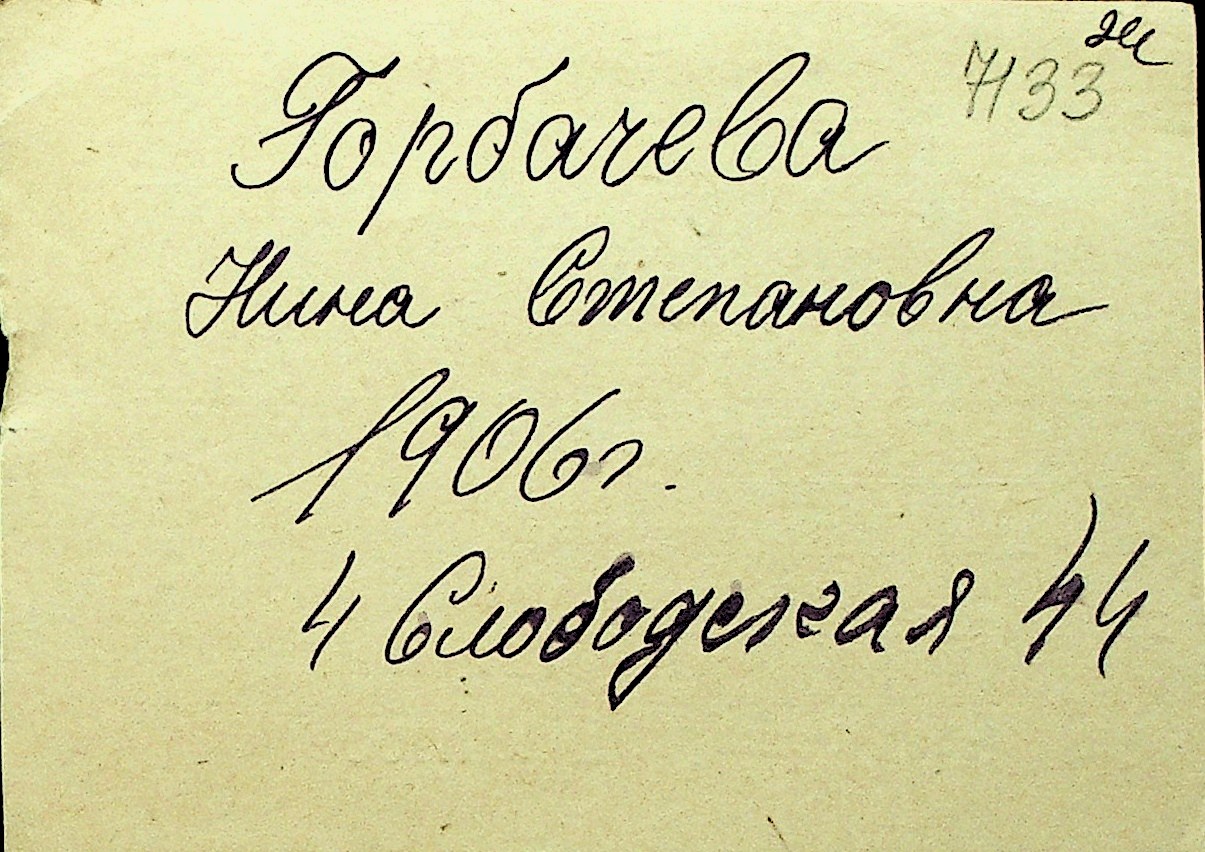 7133
Горбачева
Нина Степановна
1906г.
4 Слободская 44